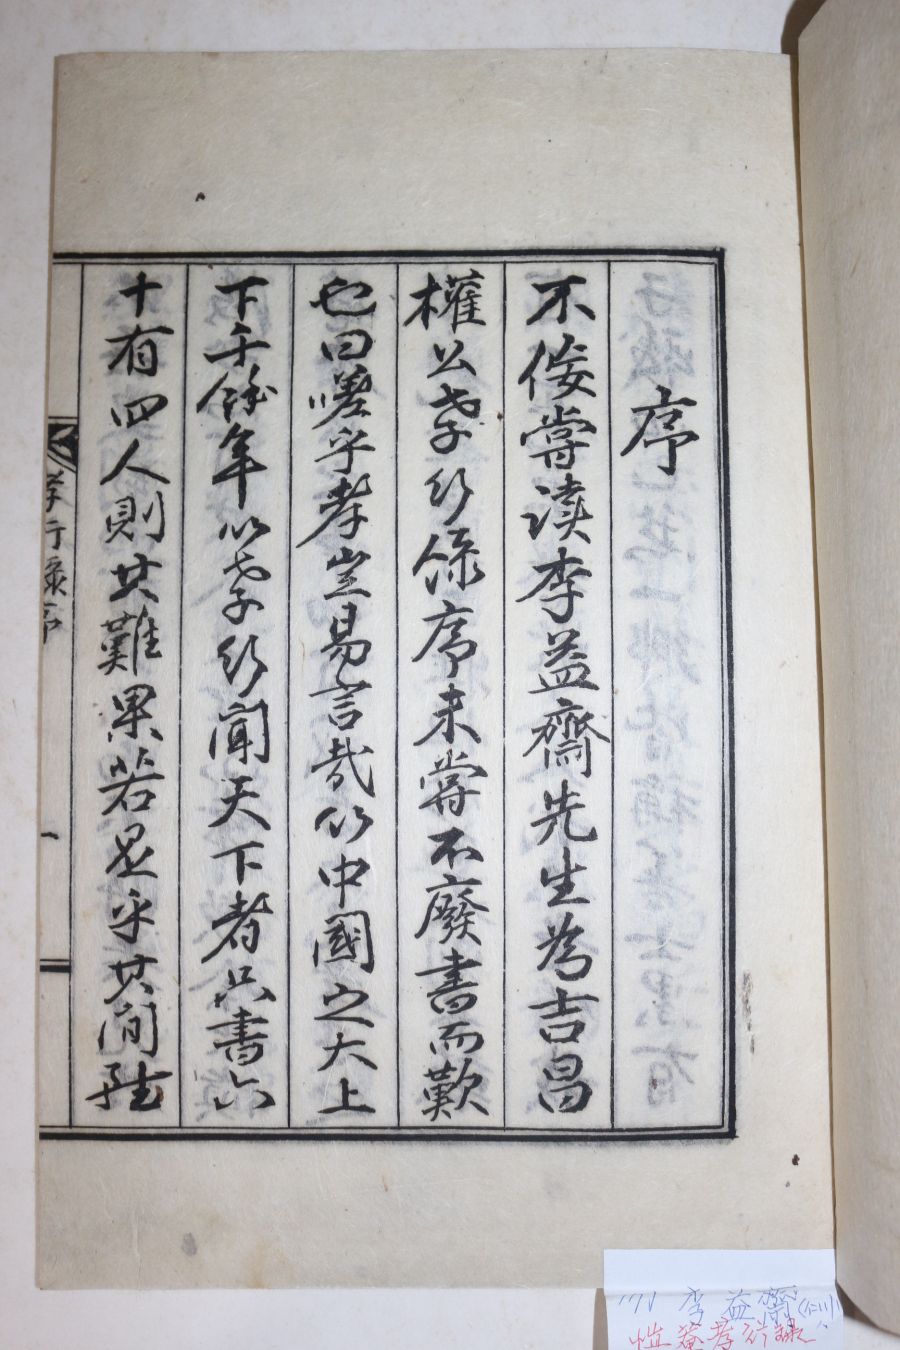 序
不佞嘗讀李益齋先生為吉昌
權公孝行錄序未嘗不廢書而歎
也曰嗟乎孝豈易言哉以中國之大上
下千餘年以孝行聞天下者只書六
十有四人則其難果若是乎其間
孝行录序
一
李益齋
孝行錄